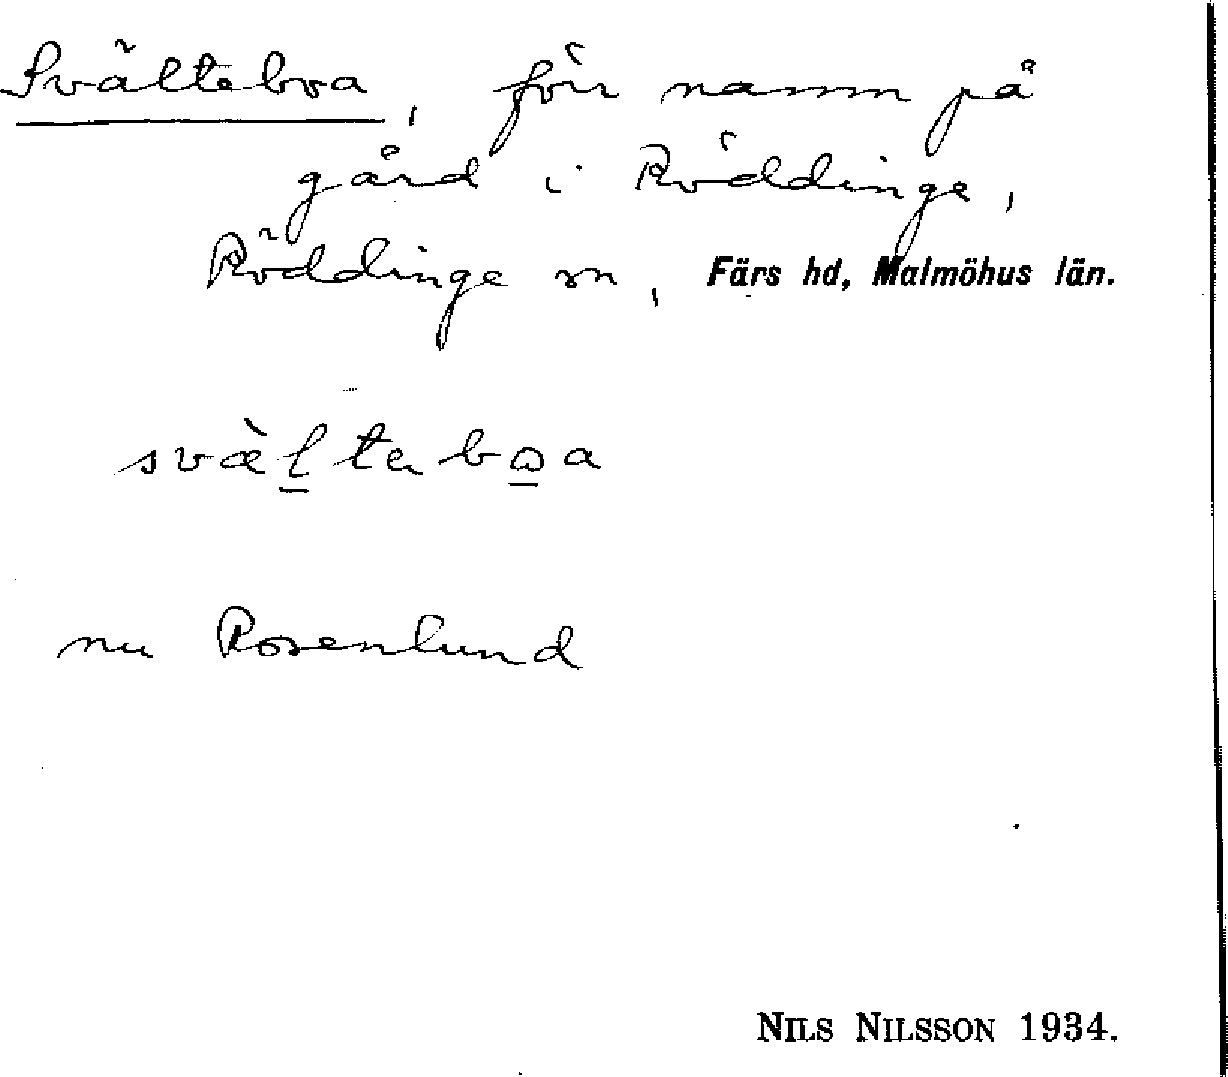 Svälteboa, förr namn på
gård i Röddinge,
Röddinge sn, Färs hd, Malmöhus län.
svæ̀l̠tabo̠a
nu Rosenlund
NILS NILSSON 1934.